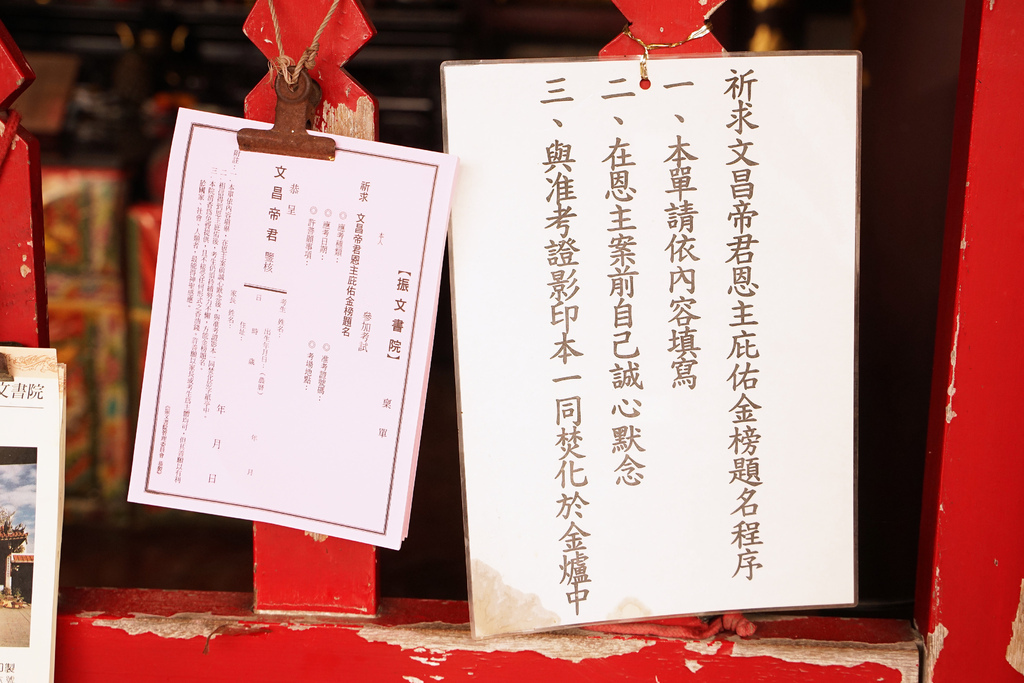 祈求文昌帝君恩主庇佑金榜題名程序
一、本單請依內容填寫
二、在恩主案前自己誠心默念
三、與准考證影印本一同焚化於金爐中
【振文書院】 稟單
本人 參加考試
祈求 文昌帝君恩主庇佑金榜題名
◎應考種類： ◎准考證號碼：
◎應考日期： ◎考場地點：
◎許普願事項：
恭呈
文昌帝君 鑒核
考生 姓名：
出生年月日：（農曆） 年 月
日 時 歲
家長 姓名：
住址：
年 月 日
附註：
文書院